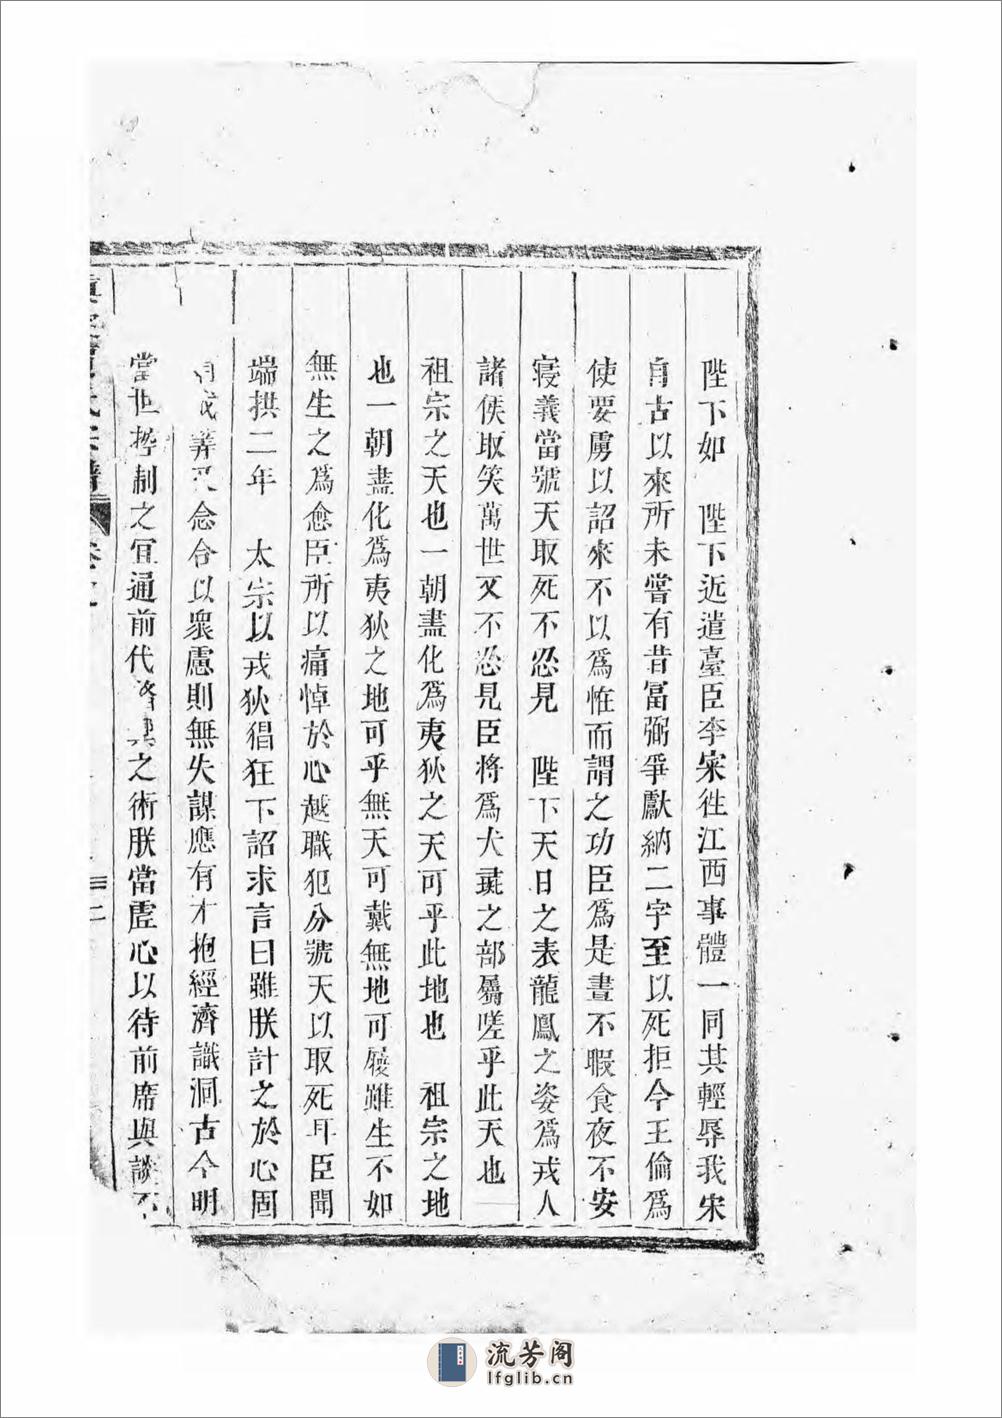 陛下如　陛下近遣臺臣李寀徃江西事體一同其輕辱我宋
自古以來所未嘗有昔冨弼爭獻納二字至以死拒今王倫爲
使要虜以詔來不以爲恠而謂之功臣爲是晝不暇食夜不安
寝義當號天取死不忍見　陛下天日之表龍鳳之姿爲戎人
諸侯取笑萬世又不忍見臣將爲犬彘之部屬嗟乎此天也
祖宗之天也一朝盡化爲夷狄之天可乎此地也　祖宗之地
也一朝盡化爲夷狄之地可乎無天可戴無地可履雖生不如
無生之爲愈臣所以痛悼於心越職犯分號天以取死耳臣聞
端拱二年　太宗以戎狄猖狂下詔求言曰雖朕計之於心固
有成筭又念合以衆慮則無失謀應有才抱經濟識洞古今明
當世控制之宜通前代之術朕當虚心以待前席與談不
氏宗譜
卷之
二
流芳阁
lfglib.cn